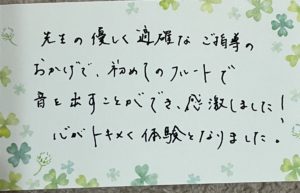 先生の優しく適確なご指導の
おかげで、初めてのフルートで
音を出すことができ、感激しました!
心がトキメく体験となりました。